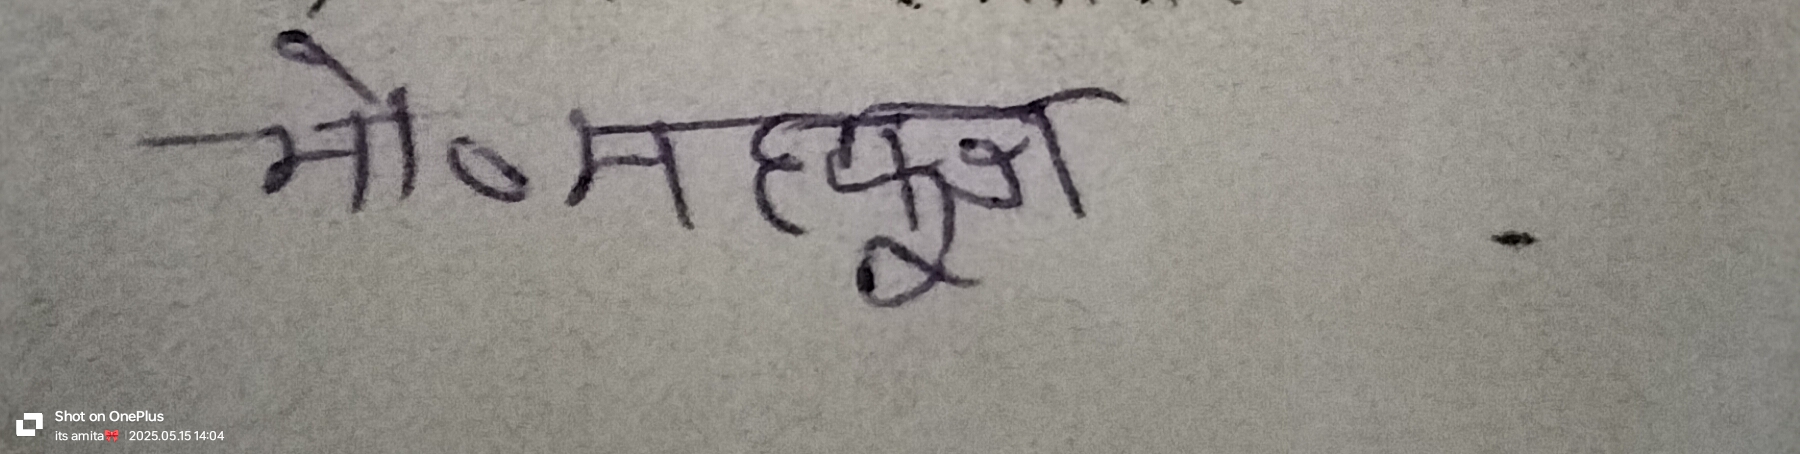 मो० महफूज
Shot on OnePlus
its amita🎀 | 2025.05.15 14:04